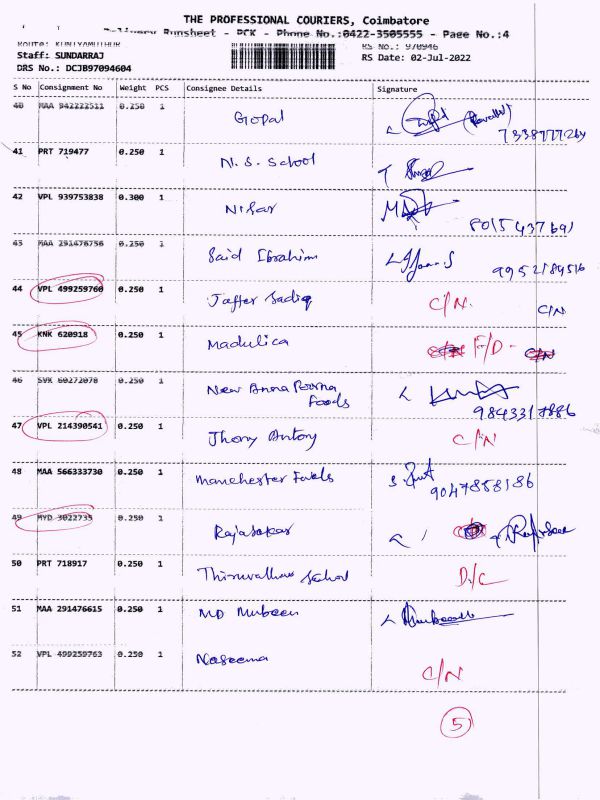 THE PROFESSIONAL COURIERS, Coimbatore
Delivery Runsheet - PCK - Phone No.:0422-3505555 - Page No.:4
Route: KUNIYAMUTHUR RS No.: 970946
Staff: SUNDARRAJ RS Date: 02-Jul-2022
DRS No.: DCJB97094604
S No Consignment No Weight PCS Consignee Details Signature
40 MAA 942222511 0.250 1 Gopal
41 PRT 719477 0.250 1 N.S. School
42 VPL 939753838 0.300 1 Nisar 8015437691
43 MAA 291476756 0.250 1 Said Ibrahim 9952184516
44 VPL 499259760 0.250 1 Jaffer Sadiq C/N. C/N
45 KNK 620918 0.250 1 Madulica F/D - C/N
46 SVK 60272078 0.250 1 New Anna Poorna Foods
47 VPL 214390541 0.250 1 Jhony Antony C/N
48 MAA 566333730 0.250 1 Manchester Fuels 9047858186
49 MYD 3022735 0.250 1 Rajasekar
50 PRT 718917 0.250 1 Thiruvalluvar School D/C
51 MAA 291476615 0.250 1 MD Mubeen
52 VPL 499259763 0.250 1 Naseema C/N
5